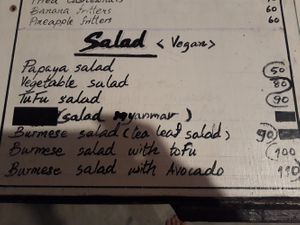 60
Banana fritters 60
Pineapple fritters 60
Salad < Vegan >
Papaya salad 50
Vegetable salad 80
TuFu salad 90
(salad myanmar)
Burmese salad (tea leaf salad) 90
Burmese salad with tofu 100
Burmese salad with Avocado 110